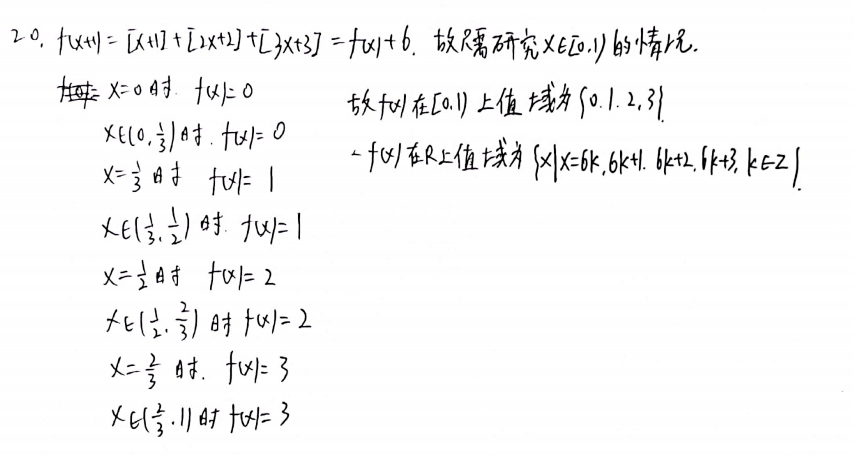 20. f(x+1) = [x+1] + [2x+2] + [3x+3] = f(x)+6. 故只需研究 x∈[0,1) 的情况.
x=0 时. f(x)=0
x∈(0,1/3)时. f(x)=0
x=1/3 时 f(x)=1
x∈(1/3,1/2) 时. f(x)=1
x=1/2 时 f(x)=2
x∈(1/2,2/3) 时 f(x)=2
x=2/3 时. f(x)=3
x∈(2/3,1) 时 f(x)=3
故f(x) 在[0,1) 上值域为 {0.1.2,3}
∴f(x) 在R上值域为 {x|x=6k,6k+1.6k+2,6k+3,k∈Z}.